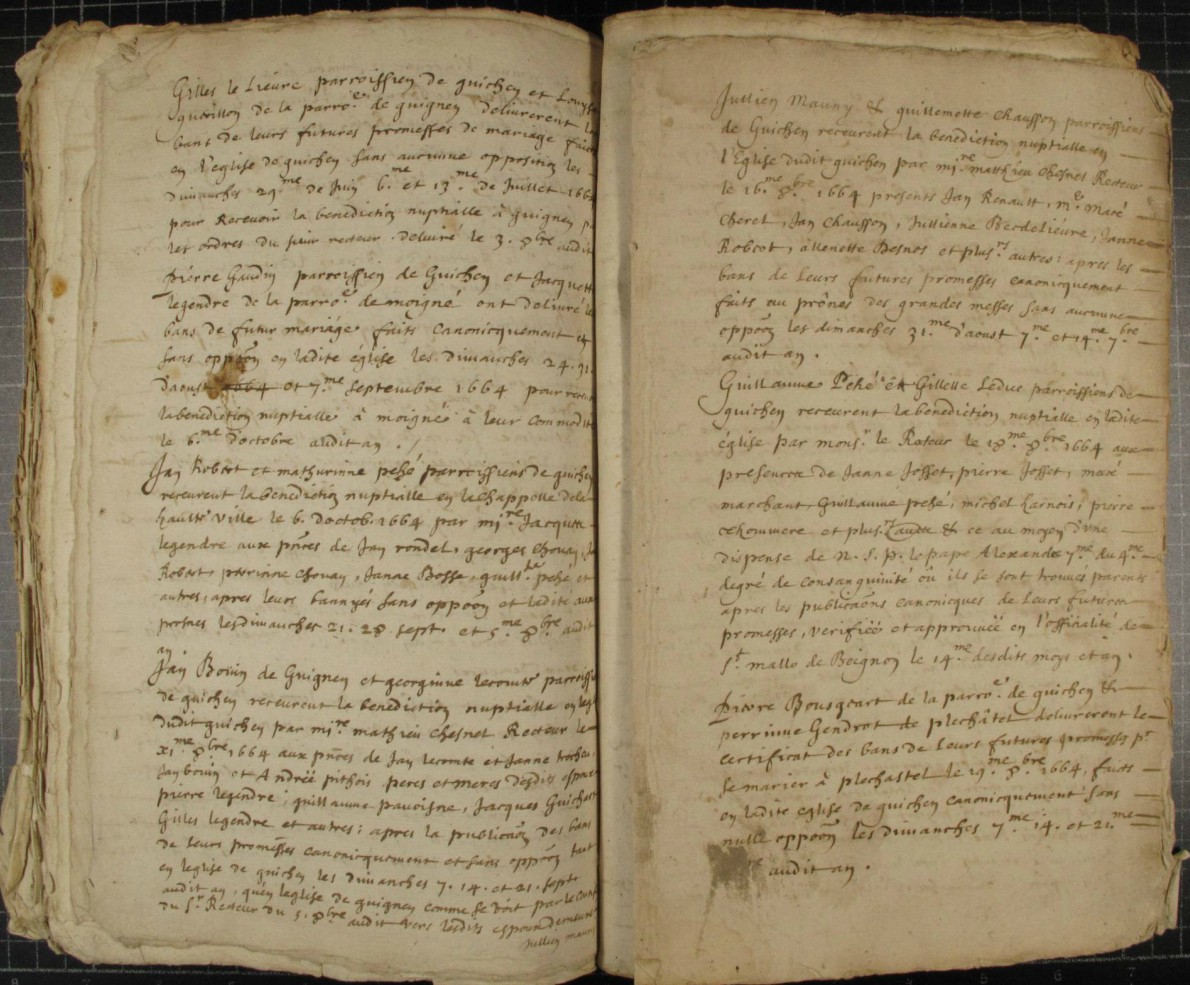 Gilles le Lieure parroissien de guichen et Louyse
querillon de la parro.e de guignen deliurerent les
bans de leurs futures promesses de mariage faits
en l'eglise de guichen sans aucunne opposition les
dimanches 29.me de Juin 6.me et 13.me de Juillet 1664
pour Recevoir la benediction nuptialle à guignen p
les ordres du sieur recteur. deliuré le 3. 8bre audit
Pierre Gaudin parroissien de Guichen et Jacquette
legendre de la parro.e de moigné ont deliuré les
bans de futur mariage faits canonicquement et
sans oppoon en ladite église les dimanches 24. 31.
d'aoust 1664 et 7.me Septembre 1664 pour recevoir
la benediction nuptialle à moigné à leur commodit
le 6.me d'octobre audit an.
Jan Robert et mathurinne pehé parroissiens de guichen
receurent la benediction nuptialle en la chappelle de la
haulte ville le 6. d'octob. 1664 par mi.re Jacques
legendre aux pnces de Jan rondel, georges Chouan, Ja
Robert, perrinne Chouan, Janne Bosse, guill.me pehé et
autres, apres leurs bannyés sans oppoon et ladite aux
prosnes les dimanches 21. 28. sept. et 5.me 8.bre audit
an.
Jan Bouin de Guignen et georginne lecomte parroissi
de guichen receurent la benediction nuptialle en l'egl
dudit guichen par mi.re mathieu Chesnel Recteur le
xi.me 8bre 1664 aux pnces de Jan lecomte et Janne
Jan bouin et Andréé pithois peres et meres desdits espous
pierre legendre, guillaume pauoisne, Jacques Guichart
Gilles legendre et autres; apres la publicaon des bans
de leurs promesses canonicquement et sans oppoon tant
en leglise de guichen les dimanches 7. 14. et 21. sept.
audit an, qu'en leglise de guignen comme se voit par le
du S.r Recteur du 5. 8bre audit vers lesdits espoux demeure
Jullien mauny
Jullien Mauny & guillemette Chausson parroissiens
de Guichen receurent la benediction nuptialle en
l'Eglise dudit guichen par mi.re matthieu Chesnel Recteur
le 16.me 8.bre 1664 presents Jan Renault, m.e Maré
Cherel, Jan Chausson, Jullienne Becdelieure, Janne
Robert, allenette Besnos et plus.rs autres: apres les
bans de leurs futures promesses canonicquement
faits au prônes des grandes messes sans aucunne
oppoon les dimanches 31.me d'aoust 7.me et 14.me 7.bre
audit an.
Guillaume Pehé et Gillette Leduc parroissiens de
guichen receurent la benediction nuptialle en ladite
église par mons.r le Recteur le 18.me 8.bre 1664 aux
presences de Janne Josset, pierre Josset, maré
marchant, Guillaume pehé, michel harnois, pierre
et plus.rs autres & ce au moyen d'vne
dispense de N. S. P. le pape Alexandre 7.me du 4.me
degré de consanguinité où ils se sont trouués parents
apres les publicaons canonicques de leurs futures
promesses, verifiéé et approuuéé en l'officialité de
S.t mallo de Beignon le 14.me desdits moys et an.
Pierre Bousquart de la parro.e de guichen &
perrinne Gendrot de plechâtel deliurerent le
certificat des bans de leurs futures promesses p.r
se marier à plechastel le 19.me 8.bre 1664, faits
en ladite eglise de guichen canonicquement sans
nulle oppoon les dimanches 7.me 14. et 21.me
audit an.